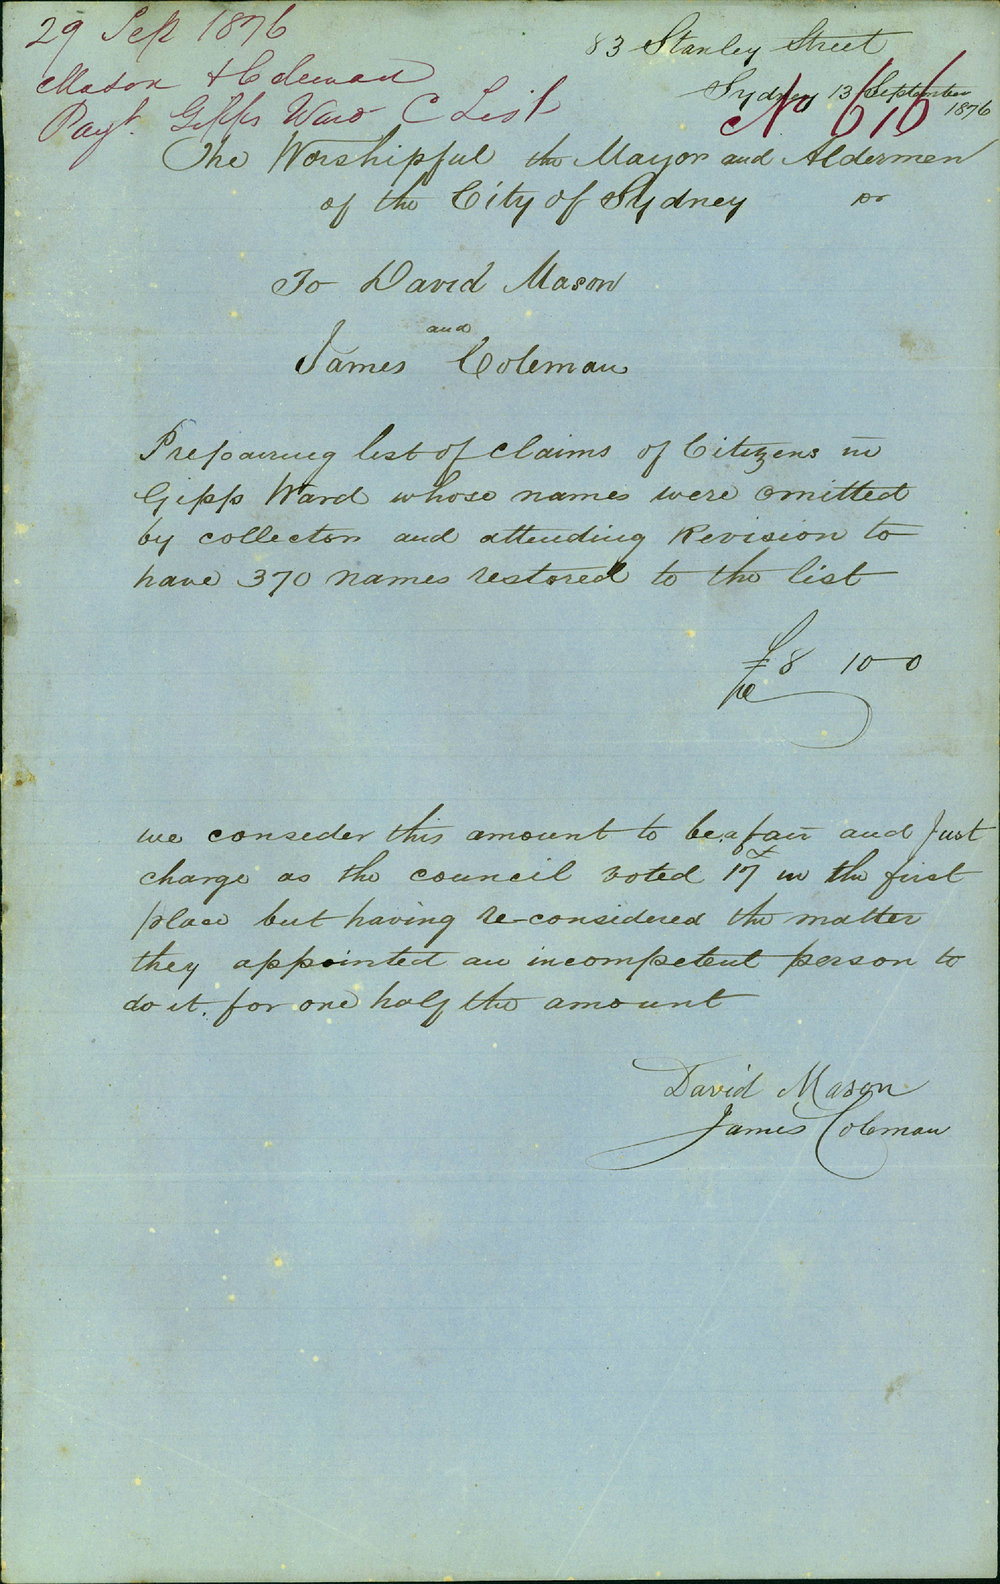 29 Sept 1876
Mason & Coleman
Payt. Gipps Ward C List
83 Stanley Street
Sydney 13 September
1876
No 616
The Worshipful the Mayor and Aldermen
of the City of Sydney Dr
To David Mason
and
James Coleman
Prepairing list of claims of Citizens in
Gipps Ward whose names were omitted
by collector and attending Revision to
have 370 names restored to the list
£8 10 0
we conseder this amount to be a fair and Just
charge as the council voted 17£ in the first
place but having re-considered the matter
they appointed an incompetent person to
do it. for one half the amount
David Mason
James Coleman